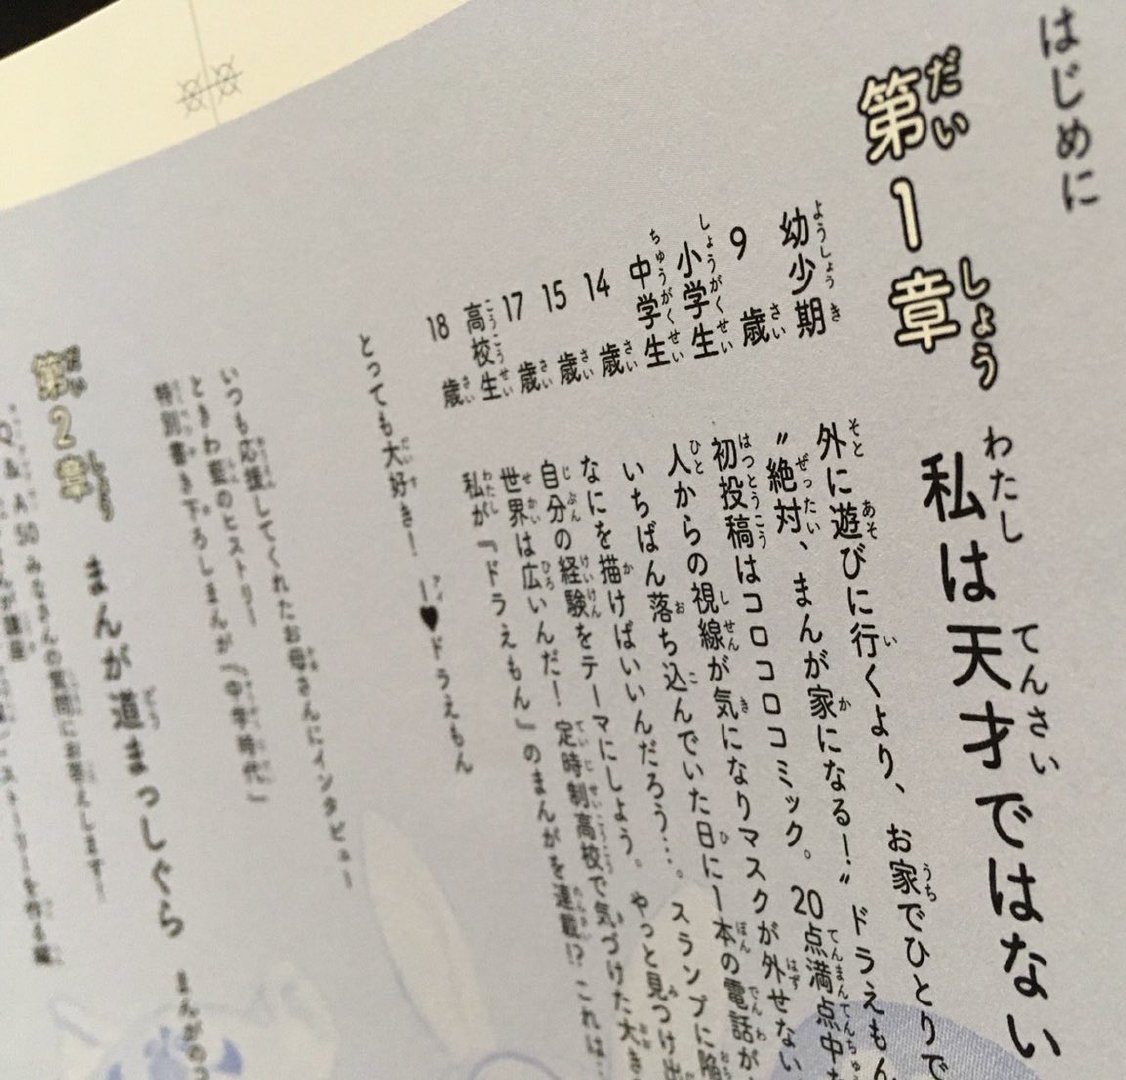 はじめに
第1章 私は天才ではない
幼少期 外に遊びに行くより、お家でひとりで
9歳 〝絶対、まんが家になる!〟ドラえもん
小学生 初投稿はコロコロコミック。20点満点中
中学生 人からの視線が気になりマスクが外せない
14歳 いちばん落ち込んでいた日に一本の電話が
15歳 なにを描けばいいんだろう…。スランプに陥
17歳 自分の経験をテーマにしよう。やっと見つけ出
高校生 世界は広いんだ! 定時制高校で気づけた大き
18歳 私が『ドラえもん』のまんがを連載!? これは…
とっても大好き! I♥ドラえもん
いつも応援してくれたお母さんにインタビュー
ときわ藍のヒストリー
特別書き下ろしまんが『中学時代』
第2章 まんが道まっしぐら まんがの
Q&A50 みなさんの質問にお答えします!
まんが講座 ストーリーを作る編